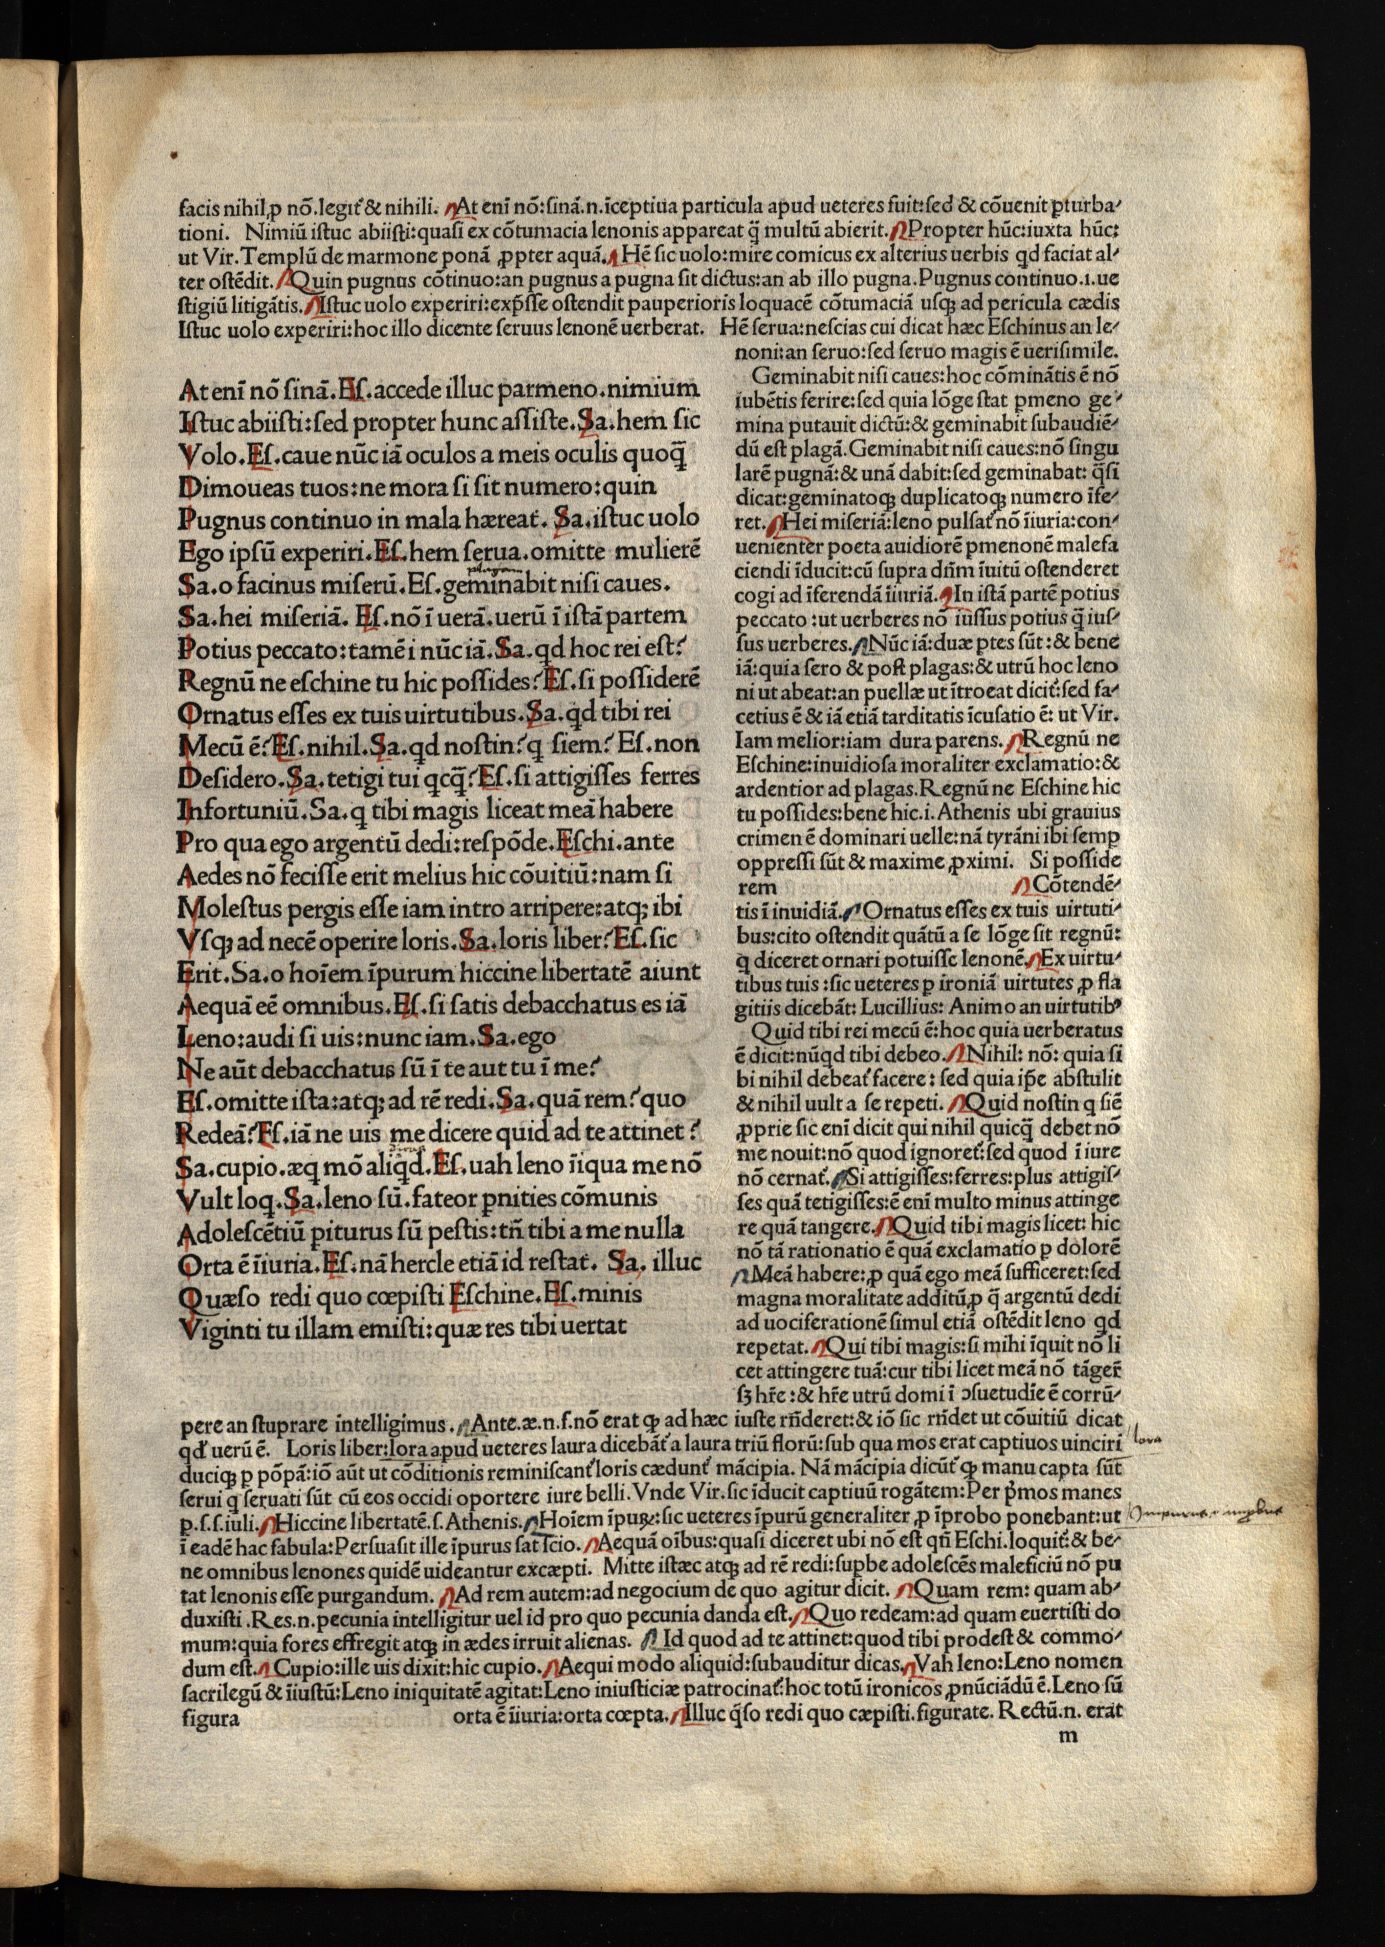 facis nihil ꝓ nō.legit᷑ & nihili. At enī nō:sinā.n.īceptiua particula apud ueteres fuit:sed & cōuenit ꝑturba⸗
tioni. Nimiū istuc abiisti:quasi ex cōtumacia lenonis appareat q̄ multū abierit. Propter hūc:iuxta hūc:
ut Vir. Templū de marmone ponā ꝓpter aquā. Hē sic uolo:mire comicus ex alterius uerbis qd faciat al⸗
ter ostēdit. Quin pugnus cōtinuo:an pugnus a pugna sit dictus:an ab illo pugna. Pugnus continuo.i.ue
stigiū litigātis. Istuc uolo experiri:exp̄sse ostendit pauperioris loquacē cōtumaciā usqꝫ ad pericula cædis
Istuc uolo experiri:hoc illo dicente seruus lenonē uerberat. Hē serua:nescias cui dicat hæc Eschinus an le⸗
At enī nō sinā.Es.accede illuc parmeno.nimium
Istuc abiisti:sed propter hunc assiste.Sa.hem sic
Volo.Es.caue nūc iā oculos a meis oculis quoq̄
Dimoueas tuos:ne mora si sit numero:quin
Pugnus continuo in mala hæreat. Sa.istuc uolo
Ego ipsū experiri.Es.hem serua.omitte mulierē
plagam
Sa.o facinus miserū.Es.geminabit nisi caues.
Sa.hei miseriā. Es.nō ī uerā.uerū ī istā partem
Potius peccato:tamē i nūc iā.Sa.qd hoc rei est?
Regnū ne eschine tu hic possides?Es.si possiderē
Ornatus esses ex tuis uirtutibus.Sa.qd tibi rei
Mecū ē?Es.nihil.Sa.qd nostin?q siem? Es.non
Desidero.Sa.tetigi tui qcq̄?Es.si attigisses ferres
Infortuniū.Sa.q tibi magis liceat meā habere
Pro qua ego argentū dedi:respōde.Eschi.ante
Aedes nō fecisse erit melius hic cōuitiū:nam si
Molestus pergis esse iam intro arripere:atqꝫ ibi
Vsqꝫ ad necē operire loris.Sa.loris liber?Es.sic
Erit.Sa.o hoīem īpurum hiccine libertatē aiunt
Aequā eē omnibus.Es.si satis debacchatus es iā
Leno:audi si uis:nunc iam.Sa.ego
Ne aūt debacchatus sū ī te aut tu ī me?
Es.omitte ista:atqꝫ ad rē redi.Sa.quā rem?quo
Redeā?Es.iā ne uis me dicere quid ad te attinet?
Sa.cupio.æq mō aliq̄d.Es.uah leno īiqua me nō
Vult loq.Sa.leno sū.fateor ꝑnities cōmunis
Adolescētiū piturus sū pestis:tn̄ tibi a me nulla
Orta ē īiuria.Es.nā hercle etiā id restat. Sa. illuc
Quæso redi quo cœpisti Eschine.Es.minis
Viginti tu illam emisti:quæ res tibi uertat
noni:an seruo:sed seruo magis ē uerisimile.
Geminabit nisi caues:hoc cōminātis ē nō
iubētis ferire:sed quia lōge stat ꝑmeno ge⸗
mina putauit dictū:& geminabit subaudiē⸗
dū est plagā.Geminabit nisi caues:nō singu
larē pugnā:& unā dabit:sed geminabat: q̄si
dicat:geminatoqꝫ duplicatoqꝫ numero īfe⸗
ret. Hei miseriā:leno pulsat᷑ nō īiuria:con⸗
uenienter poeta auidiorē ꝑmenonē malefa
ciendi īducit:cū supra dn̄m īuitū ostenderet
cogi ad īferendā īiuriā. In istā partē potius
peccato :ut uerberes nō iussus potius q̄ ius⸗
sus uerberes. Nūc iā:duæ ꝑtes sūt :& bene
iā:quia sero & post plagas:& utrū hoc leno
ni ut abeat:an puellæ ut ītroeat dicit᷑:sed fa⸗
cetius ē & iā etiā tarditatis īcusatio ē: ut Vir.
Iam melior:iam dura parens. Regnū ne
Eschine:inuidiosa moraliter exclamatio:&
ardentior ad plagas.Regnū ne Eschine hic
tu possides:bene hic.i.Athenis ubi grauius
crimen ē dominari uelle:nā tyrāni ibi semꝑ
oppressi sūt & maxime ꝓximi. Si posside
rem Cōtendē⸗
tis ī inuidiā. Ornatus esses ex tuis uirtuti⸗
bus:cito ostendit quātū a se lōge sit regnū:
q diceret ornari potuisse lenonē. Ex uirtu⸗
tibus tuis :sic ueteres ꝑ ironiā uirtutes ꝓ fla
gitiis dicebāt: Lucillius: Animo an uirtutibꝰ
Quid tibi rei mecū ē:hoc quia uerberatus
ē dicit:nūqd tibi debeo. Nihil: nō: quia si
bi nihil debeat᷑ facere: sed quia ip̄e abstulit
& nihil uult a se repeti. Quid nostin q siē
ꝓprie sic enī dicit qui nihil quicq̄ debet nō
me nouit:nō quod ignoret᷑:sed quod ī iure
nō cernat᷑. Si attigisses:ferres:plus attigis⸗
ses quā tetigisses:ē enī multo minus attinge
re quā tangere. Quid tibi magis licet: hic
nō tā rationatio ē quā exclamatio ꝑ dolorē
Meā habere:ꝓ quā ego meā sufficeret:sed
magna moralitate additū,ꝓ q̄ argentū dedi
ad uociferationē simul etiā ostēdit leno qd
repetat. Qui tibi magis:si mihi īquit nō li
cet attingere tuā:cur tibi licet meā nō tāger̄
sꝫ hr̄e :& hr̄e utrū domi ī ɔsuetudīe ē corrū⸗
pere an stuprare intelligimus. Ante.æ.n.f.nō erat ꝙ ad hæc iuste rn̄deret:& iō sic rn̄det ut cōuitiū dicat
qd uerū ē. Loris liber:lora apud ueteres laura dicebāt᷑ a laura triū florū:sub qua mos erat captiuos uinciri
lora
duciqꝫ ꝑ pōpā:iō aūt ut cōditionis reminiscant᷑ loris cædunt᷑ mācipia. Nā mācipia dicūt᷑ ꝙ manu capta sūt
serui q seruati sūt cū eos occidi oportere iure belli.Vnde Vir.sic īducit captiuū rogātem:Per pʳmos manes
ꝑ.s.s.iuli. Hiccine libertatē.s.Athenis. Hoīem īpuꝝ:sic ueteres īpurū generaliter ꝓ īprobo ponebant:ut
ī eadē hac fabula:Persuasit ille īpurus sat scio. Aequā oībus:quasi diceret ubi nō est qn̄ Eschi.loquit᷑:& be⸗
ne omnibus lenones quidē uideantur excæpti. Mitte istæc atqꝫ ad rē redi:suꝑbe adolescēs maleficiū nō pu
tat lenonis esse purgandum. Ad rem autem:ad negocium de quo agitur dicit. Quam rem: quam ab⸗
duxisti .Res.n.pecunia intelligitur uel id pro quo pecunia danda est. Quo redeam:ad quam euertisti do
mum:quia fores effregit atqꝫ in ædes irruit alienas. Id quod ad te attinet:quod tibi prodest & commo⸗
dum est. Cupio:ille uis dixit:hic cupio. Aequi modo aliquid:subauditur dicas. Vah leno:Leno nomen
sacrilegū & īiustū:Leno iniquitatē agitat:Leno iniusticiæ patrocinat᷑:hoc totū ironicos ꝓnūciādū ē.Leno sū
figura orta ē īiuria:orta cœpta. Illuc q̄so redi quo cæpisti.figurate. Rectū.n. erat
m